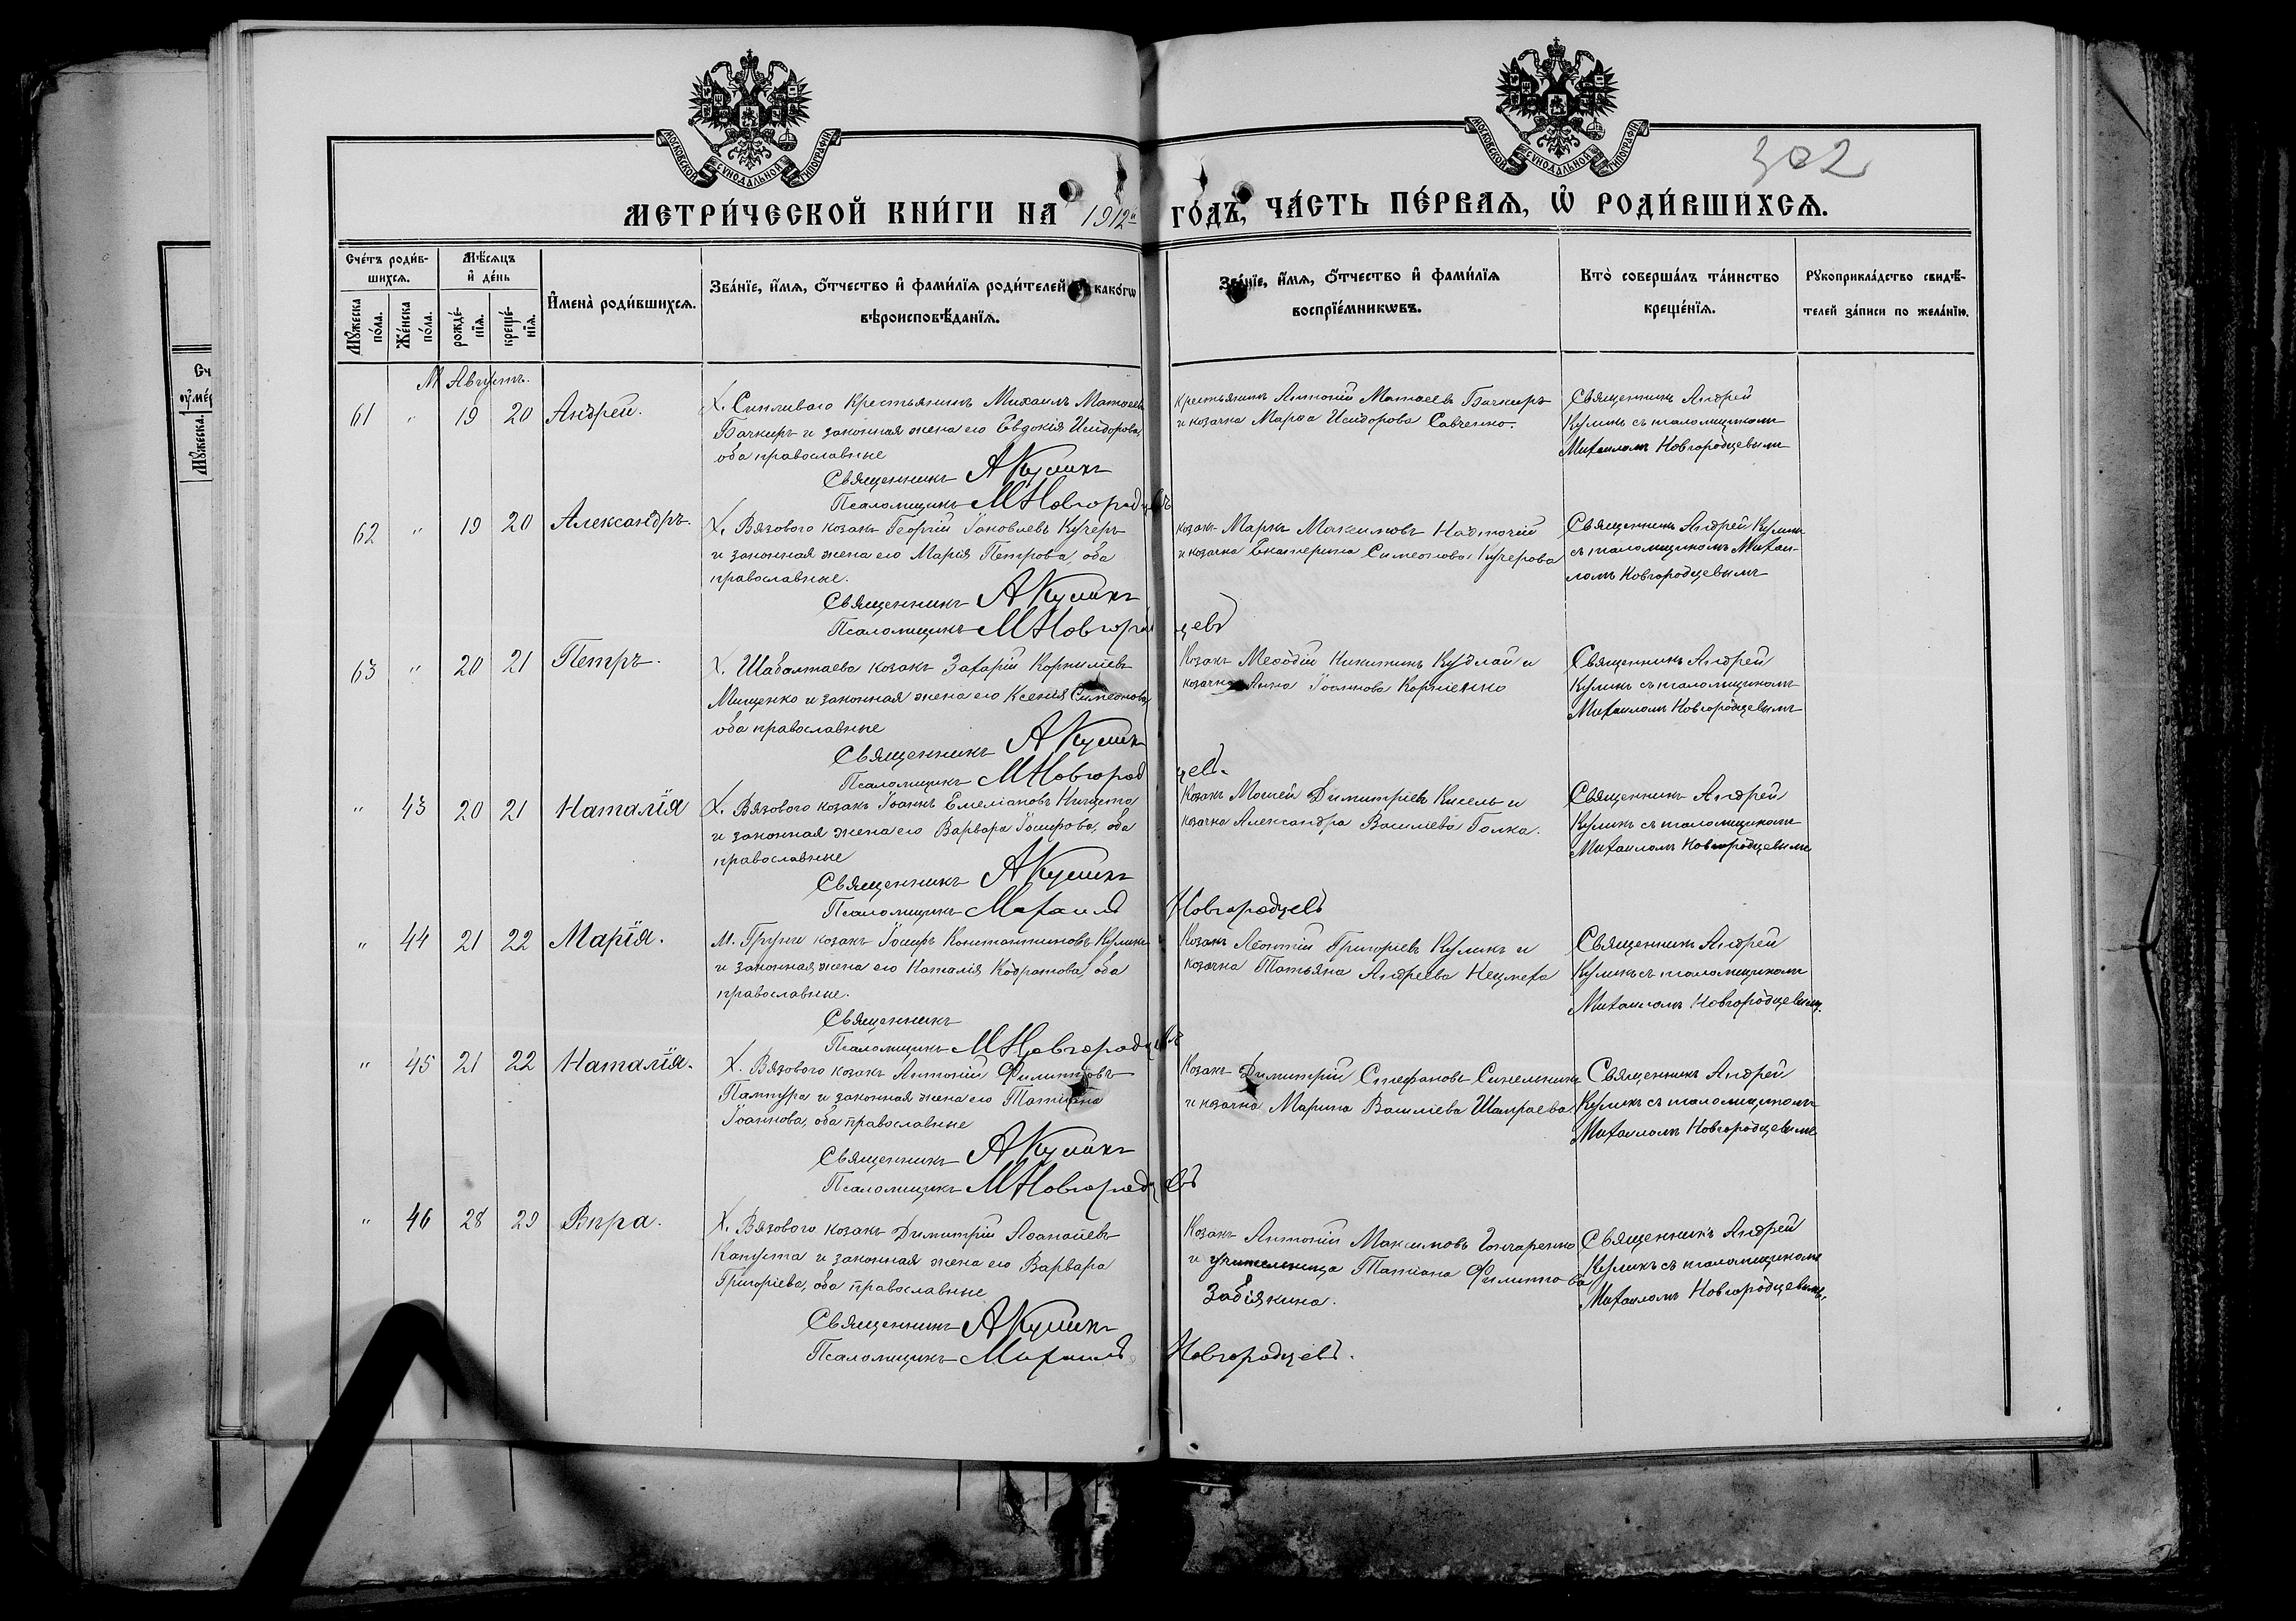 МОСКОВСКОЙ СѴНОДАЛЬНОЙ ТИПОГРАФІИ
МОСКОВСКОЙ СѴНОДАЛЬНОЙ ТИПОГРАФІИ
302
МЕТРИ́ЧЕСКОЙ КНИ́ГИ НА 1912й ГО́ДЪ, ЧА́СТЬ ПЕ́РВАѦ, Ѡ РОДИ́ВШИХСѦ.
Сче́тъ роди́в-
шихсѧ.
Мꙋ́жеска по́ла.
Же́нска по́ла.
Мѣ́сѧцъ
и҆ де́нь
рожде́-
нїѧ.
креще́-
нїѧ.
И҆мена̀ роди́вшихсѧ.
Зва́нїе, и҆́мѧ, ѻ҆́тчество и҆ фами́лїѧ роди́телей како́гѡ
вѣроисповѣ́данїѧ.
Зва́нїе, и҆́мѧ, ѻ҆́тчество и҆ фами́лїѧ
воспрїе́мникѡвъ.
Кто̀ соверша́лъ та́инство
креще́нїѧ.
Рꙋкоприкла́дство свидѣ́-
телей за́писи по жела́нїю.
М Августъ.
61 " 19 20 Андрей.
Х. Сипливаго крестьянинъ Михаилъ Матѳеевъ
Бачкиръ и законная жена его Евдокія Исидорова,
оба православные
Священникъ АКуликъ
Псаломщикъ МНовгородцевъ
крестьянинъ Антоній Матѳеевъ Бачкиръ
и козачка Марѳа Исидорова Савченко.
Священникъ Андрей
Куликъ съ псаломщикомъ
Михаиломъ Новгородцевымъ
62 " 19 20 Александръ.
Х. Вязового козакъ Георгій Іаковлевъ Кучеръ
и законная жена его Марія Петрова, оба
православные.
Священникъ АКуликъ
Псаломщикъ МНовгородцевъ
козакъ Маркъ Максимовъ Надточій
и козачка Екатерина Симеонова Кучерова
Священникъ Андрей Куликъ
съ псаломщикомъ Михаи-
ломъ Новгородцевымъ
63 " 20 21 Петръ.
Х. Шаболтаева козакъ Захарій Корниліевъ
Мищенко и законная жена его Ксенія Симеонова,
оба православные
Священникъ АКуликъ
Псаломщикъ МНовгородцевъ.
Козакъ Меѳодій Никитинъ Кудлай и
козачка Анна Іоаннова Корніенко
Священникъ Андрей
Куликъ съ псаломщикомъ
Михаиломъ Новгородцевымъ
" 43 20 21 Наталія
Х. Вязового козакъ Іоаннъ Емеліановъ Нищета
и законная жена его Варвара Іосифова, оба
православные
Священникъ АКуликъ
Псаломщикъ Михаилъ Новгородцевъ
Козакъ Моисей Димитріевъ Кисель и
козачка Александра Василіева Голка.
Священникъ Андрей
Куликъ съ псаломщикомъ
Михаиломъ Новгородцевымъ
" 44 21 22 Марія.
М. Груни козакъ Іосифъ Константиновъ Куликъ
и законная жена его Наталія Кодратова, оба
православные.
Священникъ
Псаломщикъ МНовгородцевъ
Козакъ Леонтій Григоріевъ Куликъ и
козачка Татьяна Андреева
Священникъ Андрей
Куликъ съ псаломщикомъ
Михаиломъ Новгородцевымъ.
" 45 21 22 Наталія.
Х. Вязового козакъ Антоній Филипповъ
Пампура и законная жена его Татіана
Іоаннова, оба православные
Священникъ АКуликъ
Псаломщикъ МНовгородцевъ
Козакъ Димитрій Стефановъ Синельникъ
и козачка Марина Василіева Шапраева
Священникъ Андрей
Куликъ съ псаломщикомъ
Михаиломъ Новгородцевымъ
" 46 28 29 Вѣра.
Х. Вязового козакъ Димитрій Аѳанасіевъ
Капуста и законная жена его Варвара
Григоріева, оба православные
Священникъ АКуликъ
Псаломщикъ Михаилъ Новгородцевъ.
Козакъ Антоній Максимовъ Гончаренко
и учительница Татіана Филиппова
Забіякина.
Священникъ Андрей
Куликъ съ псаломщикомъ
Михаиломъ Новгородцевымъ.